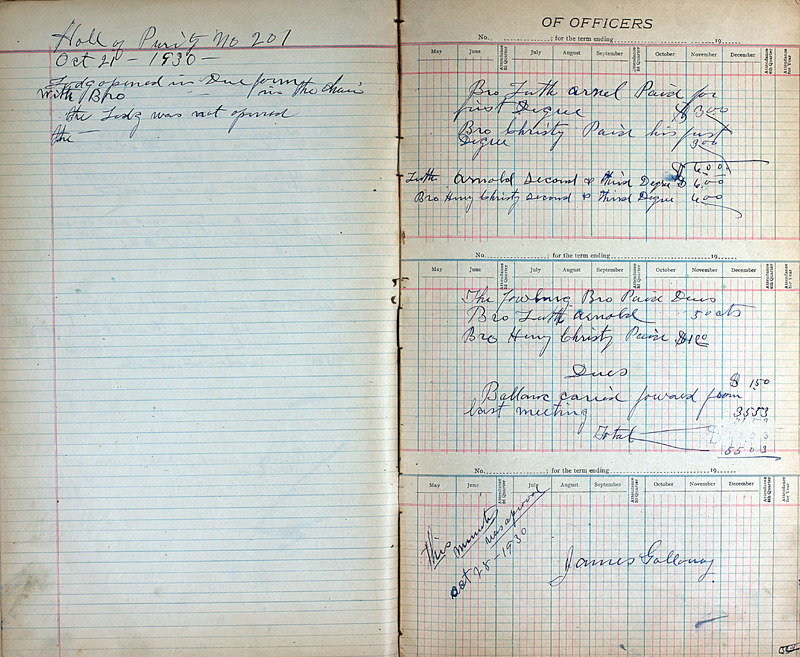 Hall of Purity No 201
Oct 21 - 1930 -
Lodg opened in Due form
with Bro in the chair
the Lodg was not opened
the
OF OFFICERS
No. ; for the term ending 19
May June Attendance 2d Quarter July August September Attendance 3d Quarter October November December Attendance 4th Quarter Attendance for Year
Bro Luth arnel Paid for
first Degree $300
Bro Christy Paid his first
Degree 300
$ 600
Luth Arnold Second & third Degree $ 600
Bro Henry Christy Second & Third Degree 600
No. ; for the term ending 19
May June Attendance 2d Quarter July August September Attendance 3d Quarter October November December Attendance 4th Quarter Attendance for Year
The Bro Paid Dues
Bro Luth Arnold 50 cts
Bro Henry Christy Paid $100
Dues $ 150
Ballanc caried foward from
last meeting 3553
Total
5503
No. ; for the term ending 19
May June Attendance 2d Quarter July August September Attendance 3d Quarter October November December Attendance 4th Quarter Attendance for Year
this minuts was aproved
oct 28 - 1930
James Galloway